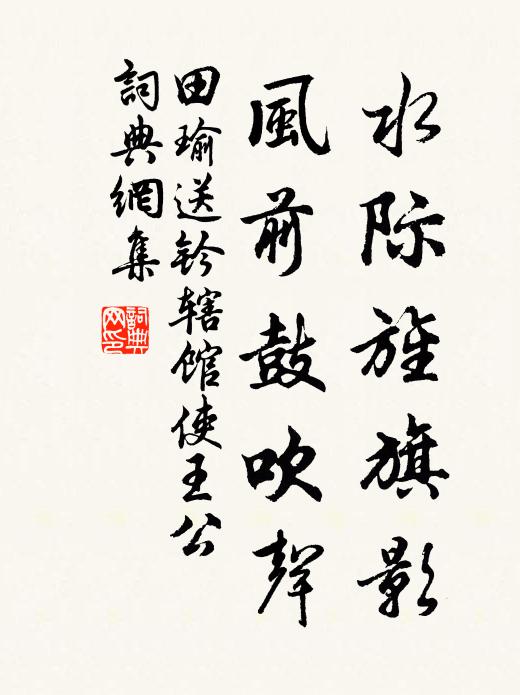 水际旌旗影
風前鼓吹聲
田瑜送钤辖馆使王公
詞典網集
詞典网印